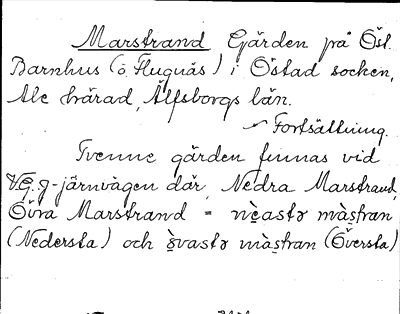 Marstrand Gården på Östl.
Barnhus (ö. Flugnäs) i Östad socken,
Ale härad, Älfsborgs län.
~ Fortsättning.
Tvenne gården finnas vid
V.G.g-järnvägen där, Nedra Marstrand,
Övra Marstrand = màs̱tran
(Nedersta) och màs̱tran (Översta)